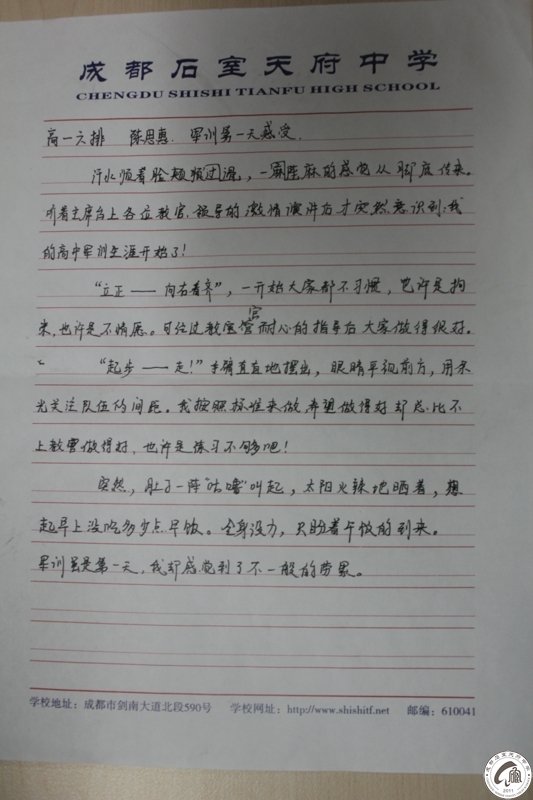 成都石室天府中学
CHENGDU SHISHI TIANFU HIGH SCHOOL
高一六排 陈思惠. 军训第一天感受.
汗水顺着脸颊过滴，一阵阵麻的感觉从脚底传来。
听着主席台上各位教官、领导的激情演讲后才突然意识到：我
的高中军训生涯开始了！
“立正——向右看齐”，一开始大家都不习惯，也许是拘
束，也许是不情愿。可经过教官耐心的指导后大家做得很好。
“起步——走！”手臂直直地摆出，眼睛平视前方，用余
光关注队伍的间距。我按照标准来做，希望做得好却总比不
上教官做得好，也许是练习不够吧！
突然，肚子一阵“咕噜”叫起，太阳火辣地晒着，想
起早上没吃多少点早饭。全身没力，只盼着午饭的到来。
军训虽是第一天，我却感觉到了不一般的劳累。
学校地址：成都市剑南大道北段590号 学校网址：http://www.shishitf.net 邮编：610041
2011